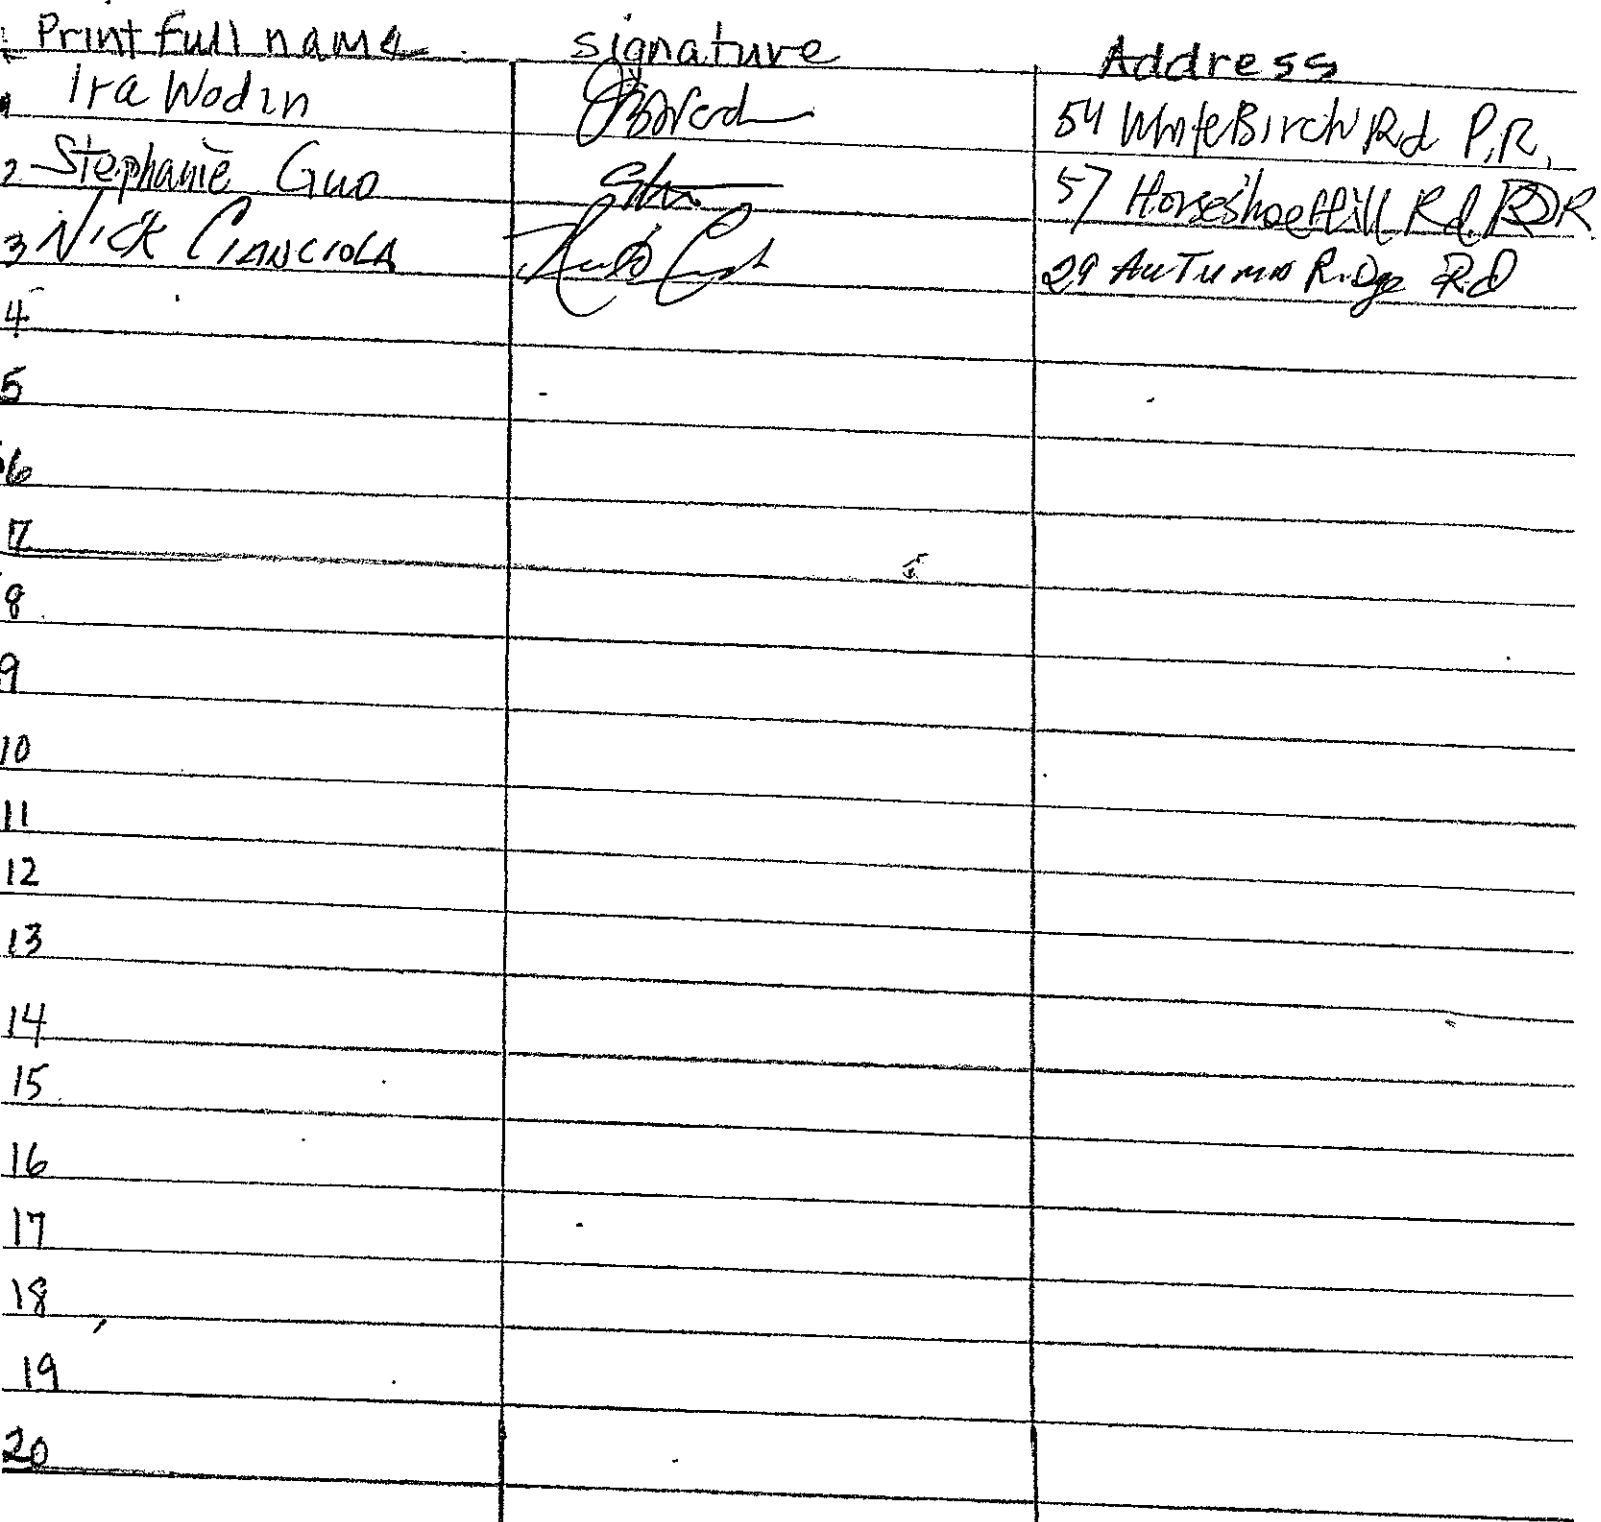 Print full name signature Address
1 Ira Wodin 54 White Birch Rd P.R.
2 Stephanie Guo 57 Horseshoe Hill Rd PR
3 Nick CIANCIOLA 29 AuTumn Ridge Rd
4
5
6
7
8
9
10
11
12
13
14
15
16
17
18
19
20